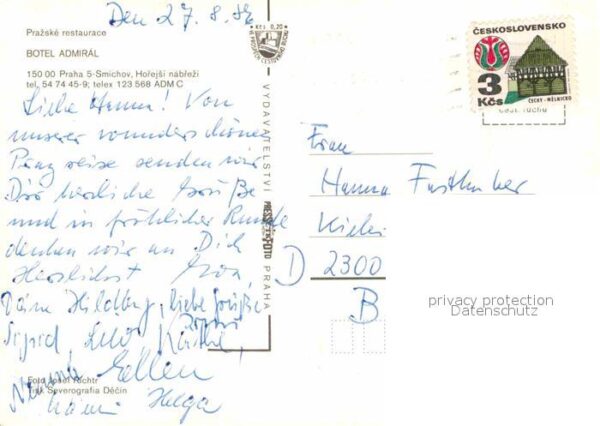 Den 27.8.86
Pražské restaurace
BOTEL ADMIRÁL
150 00 Praha 5-Smíchov, Hořejší nábřeží
tel. 54 74 45-9; telex 123 568 ADM C
Liebe Hanna! Von
unserer wunderschönen
Prag reise senden wir
Dir herzliche Grüße
und in fröhlicher Runde
denken wir an Dich
Herzlichst
Deine Hildburg, liebe Grüße
Sigrid, Käthe,
Ellen
Helga
Foto Josef Richtr
Tisk Severografia Děčín
Kčs 0,20
VYDAVATELSTVÍ PRESSFOTO PRAHA
ČESKOSLOVENSKO
3 Kčs
ČECHY - MĚLNICKO
Frau
Hanna
Kiel
D 2300
B
privacy protection
Datenschutz